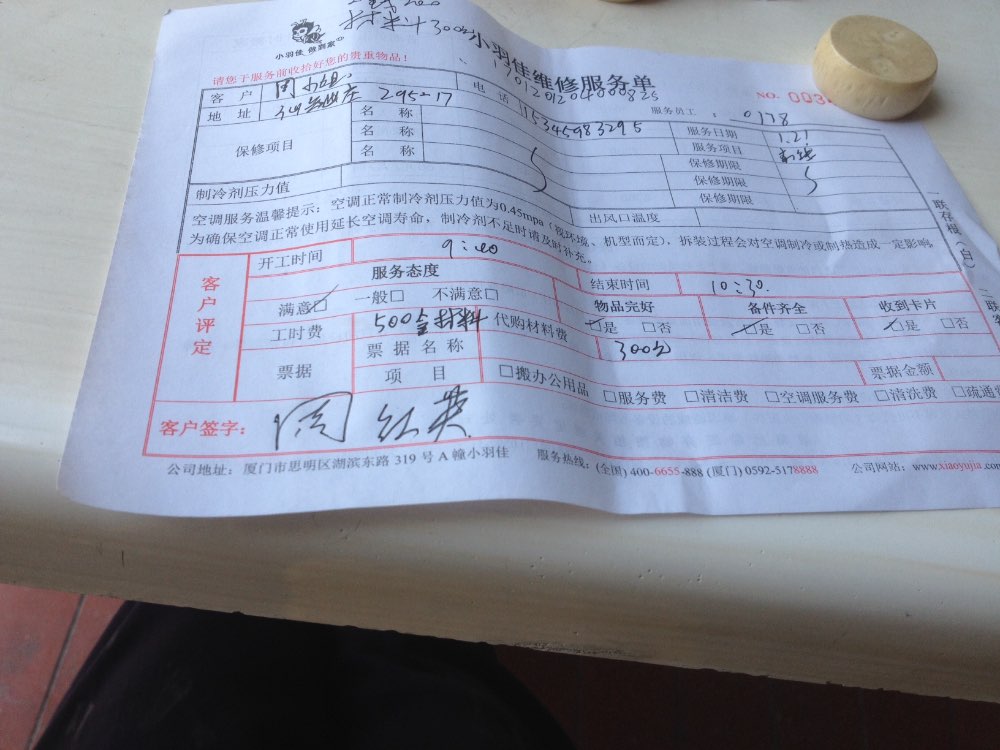 材料300元
小羽佳 做到家
小羽佳维修服务单
请您于服务前收拾好您的贵重物品!
NO. 003
701201204000825
客户 周小姐 电话 15345983295 服务员工: 0178
地址 295-17 服务日期 1.21
保修项目 名称 服务项目
名称 保修期限
名称 保修期限
保修期限
制冷剂压力值 出风口温度
空调服务温馨提示:空调正常制冷剂压力值为0.45mpa(视环境、机型而定),拆装过程会对空调制冷或制热造成一定影响,
为确保空调正常使用延长空调寿命,制冷剂不足时请及时补充。
一联存根(白)
客户评定
开工时间 9:40 结束时间 10:30.
服务态度 物品完好 备件齐全 收到卡片
满意☑ 一般□ 不满意□ ☑是 □否 ☑是 □否 ☑是 □否
工时费 500含材料 代购材料费 300元
票据 票据名称 票据金额
项目 □搬办公用品 □服务费 □清洁费 □空调服务费 □清洗费 □疏通
客户签字: 周红英
公司地址:厦门市思明区湖滨东路 319 号 A 幢小羽佳 服务热线:(全国) 400-6655-888 (厦门) 0592-5178888 公司网站:www.xiaoyujia.com